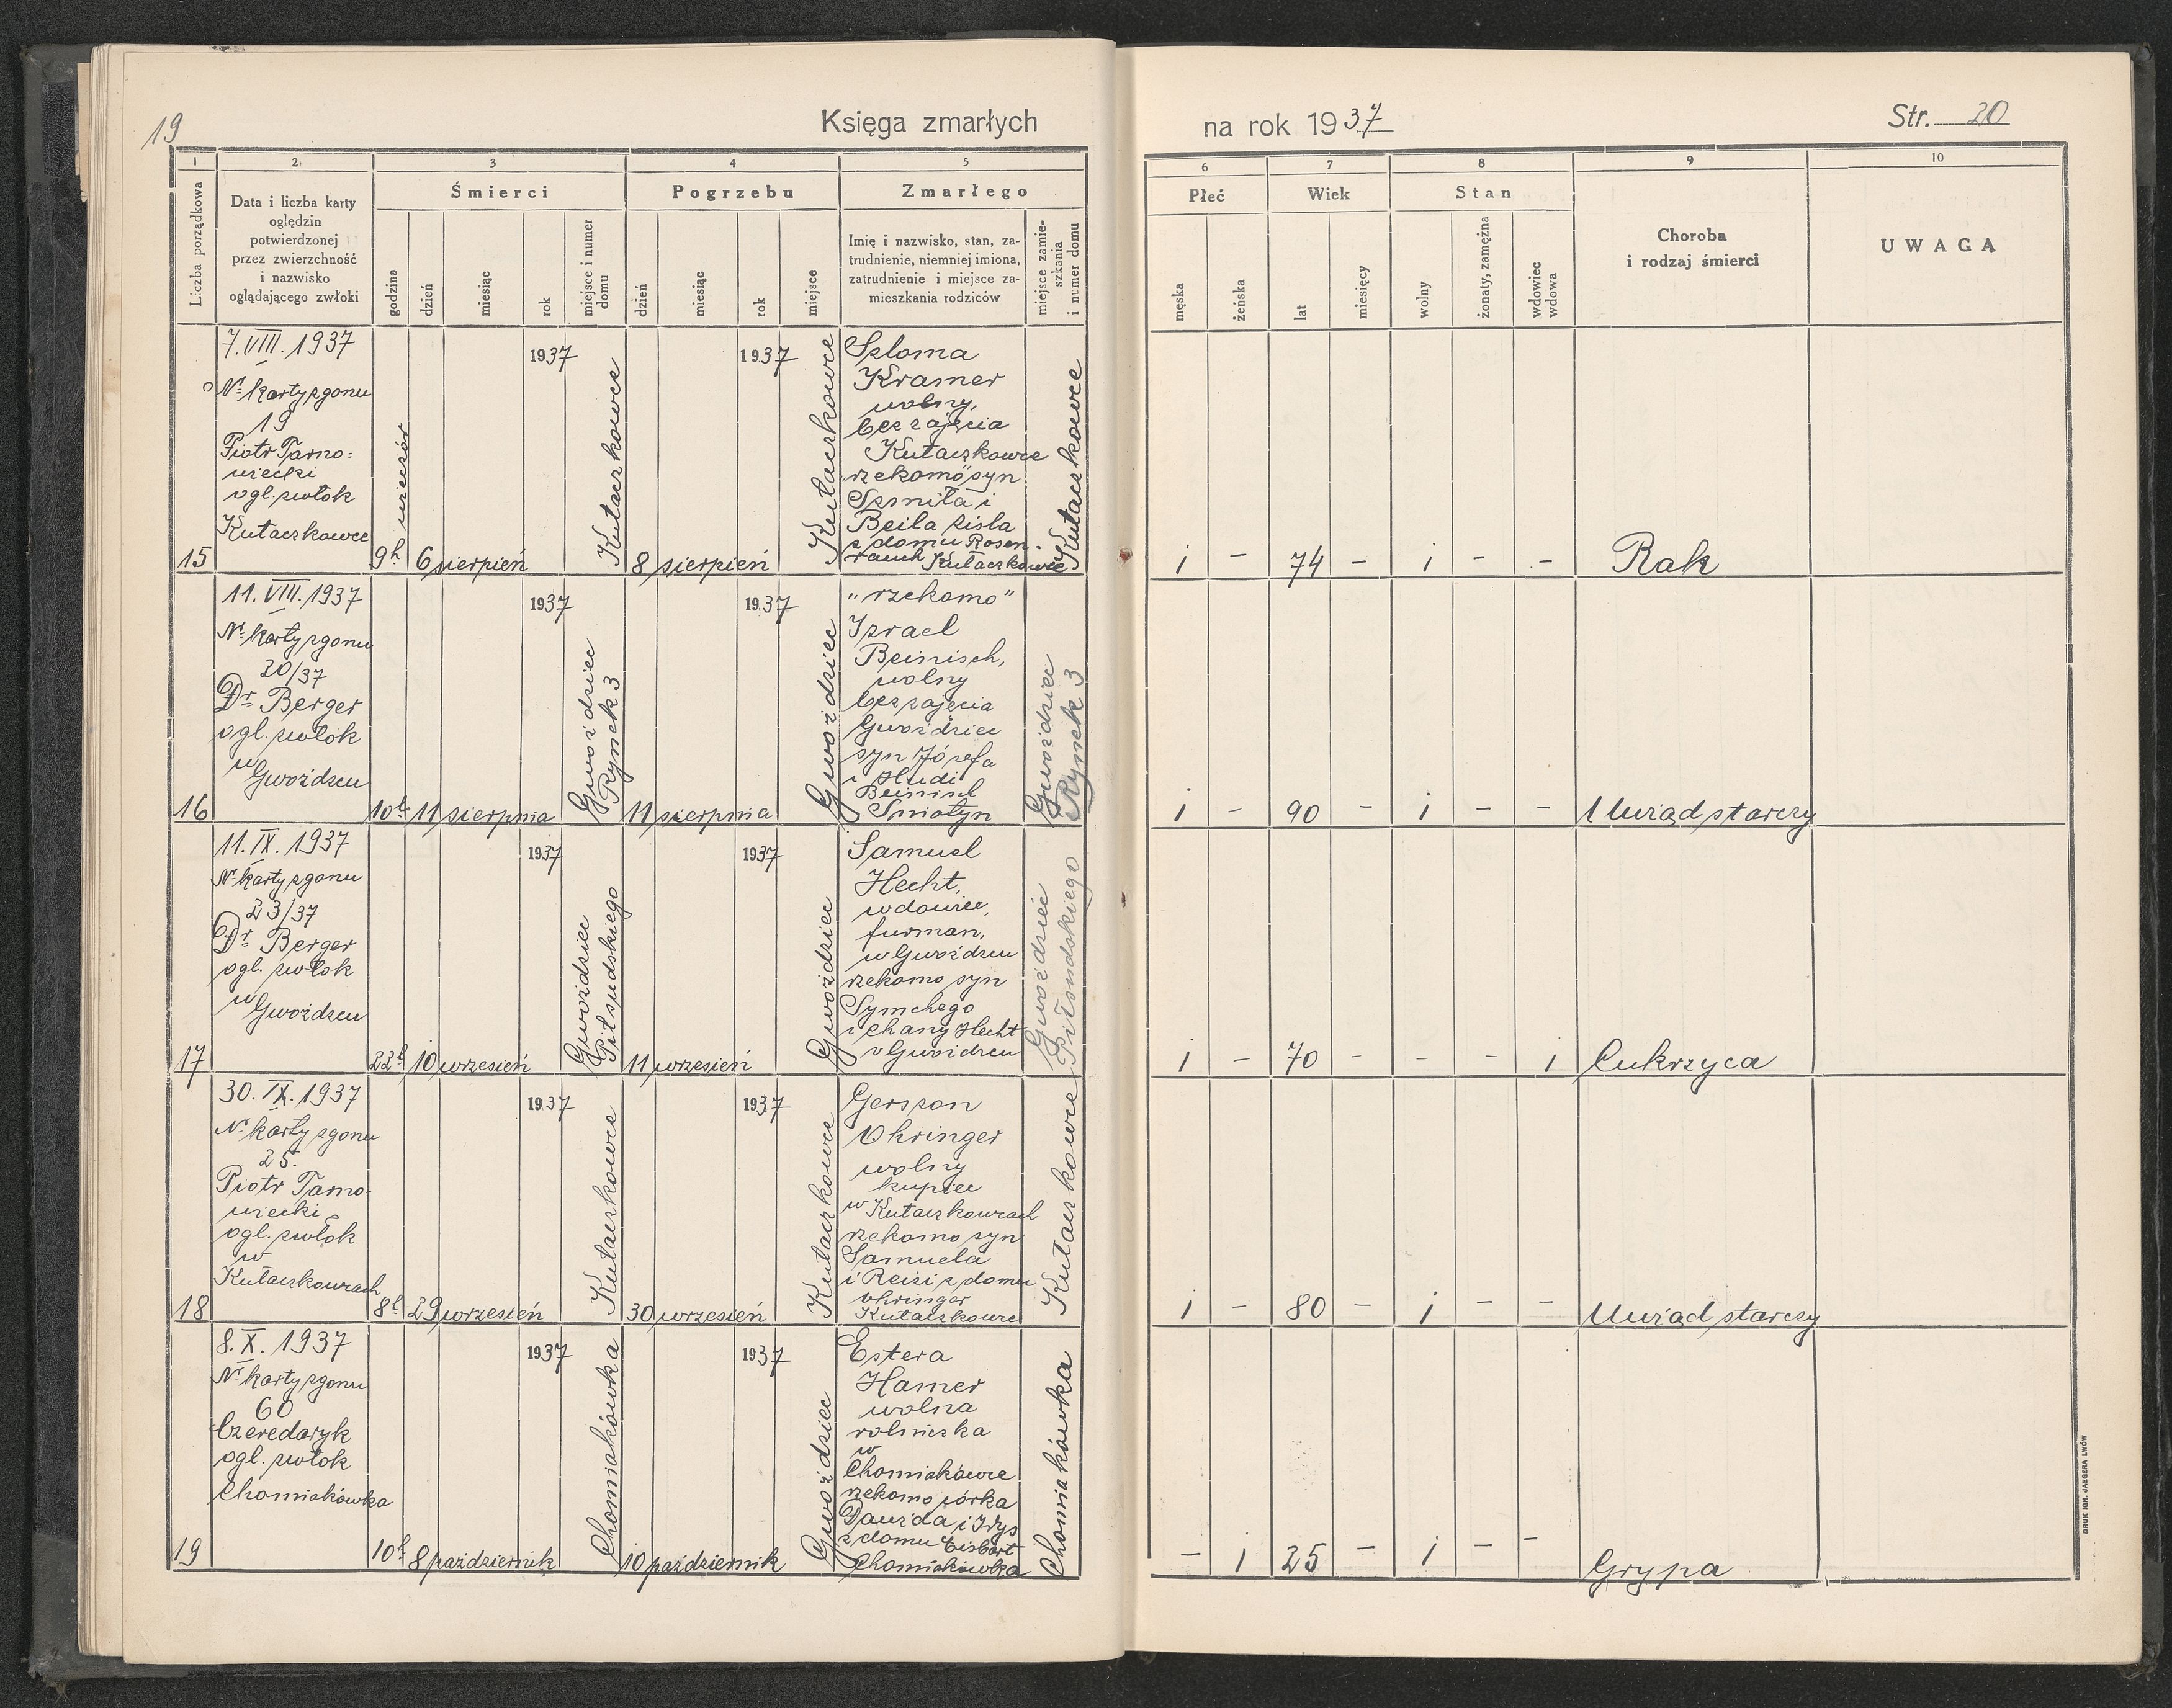 19
Księga zmarłych
na rok 1937
Str. 20
1
2
3
4
5
6
7
8
9
10
Liczba porządkowa
Data i liczba karty
oględzin
potwierdzonej
przez zwierzchność
i nazwisko
oglądającego zwłoki
Śmierci
godzina
dzień
miesiąc
rok
miejsce i numer
domu
Pogrzebu
dzień
miesiąc
rok
miejsce
Zmarłego
Imię i nazwisko, stan, za-
trudnienie, niemniej imiona,
zatrudnienie i miejsce za-
mieszkania rodziców
miejsce zamie-
szkania
i numer domu
Płeć
męska
żeńska
Wiek
lat
miesięcy
Stan
wolny
żonaty, zamężna
wdowiec
wdowa
Choroba
i rodzaj śmierci
UWAGA
15
7. VIII. 1937
Nr karty zgonu
19
Piotr Tarno=
wiecki
ogl. zwłok
Kułaczkowce
9h
wieczór
6 sierpień
1937
Kułaczkowce
8 sierpień
1937
Kułaczkowce
Szloma
Kramer
wolny,
bez zajęcia
Kułaczkowce
"rzekomo" syn
Szmiła i
Beila Zisla
z domu Rosen-
rauch Kułaczkowce
Kułaczkowce
1 - 74 - 1 - -
Rak
16
11. VIII. 1937
Nr karty zgonu
20/37
Dr Berger
ogl. zwłok
w
Gwoźdzcu
10h 11 sierpnia
1937
Gwoździec
Rynek 3
11 sierpnia
1937
Gwoździec
"rzekomo"
Izrael
Beinisch,
wolny
bez zajęcia
Gwoździec
syn Józefa
i Hudi
Beinisch
Śniatyn
Gwoździec
Rynek 3
1 - 90 - 1 - -
Uwiąd starczy
17
11. IX. 1937
Nr karty zgonu
23/37
Dr Berger
ogl. zwłok
w
Gwoźdzcu
22h 10 wrzesień
1937
Gwoździec
Piłsudskiego
11 wrzesień
1937
Gwoździec
Samuel
Hecht,
wdowiec,
furman,
w Gwoźdzcu
rzekomo syn
Symchego
i Chany Hecht
w Gwoźdzcu
Gwoździec
Piłsudskiego
1 - 70 - - - 1
Cukrzyca
18
30. IX. 1937
Nr karty zgonu
25.
Piotr Tarno-
wiecki
ogl. zwłok
w
Kułaczkowcach
8h 29 wrzesień
1937
Kułaczkowce
30 wrzesień
1937
Kułaczkowce
Gerszon
Ohringer
wolny
kupiec
w Kułaczkowcach
rzekomo syn
Samuela
i Reizi z domu
Ohringer
Kułaczkowce
Kułaczkowce
1 - 80 - 1 - -
Uwiąd starczy
19
8. X. 1937
Nr karty zgonu
60
Czeredaryk
ogl. zwłok
Chomiakówka
10h 8 październik
1937
Chomiakówka
10 październik
1937
Gwoździec
Estera
Hamer
wolna
rolniczka
w
Chomiakówce
rzekomo córka
Dawida i Idys
z domu Eisbart
Chomiakówka
Chomiakówka
- 1 25 - 1 - -
Grypa
DRUK IGN. JAEGERA LWÓW